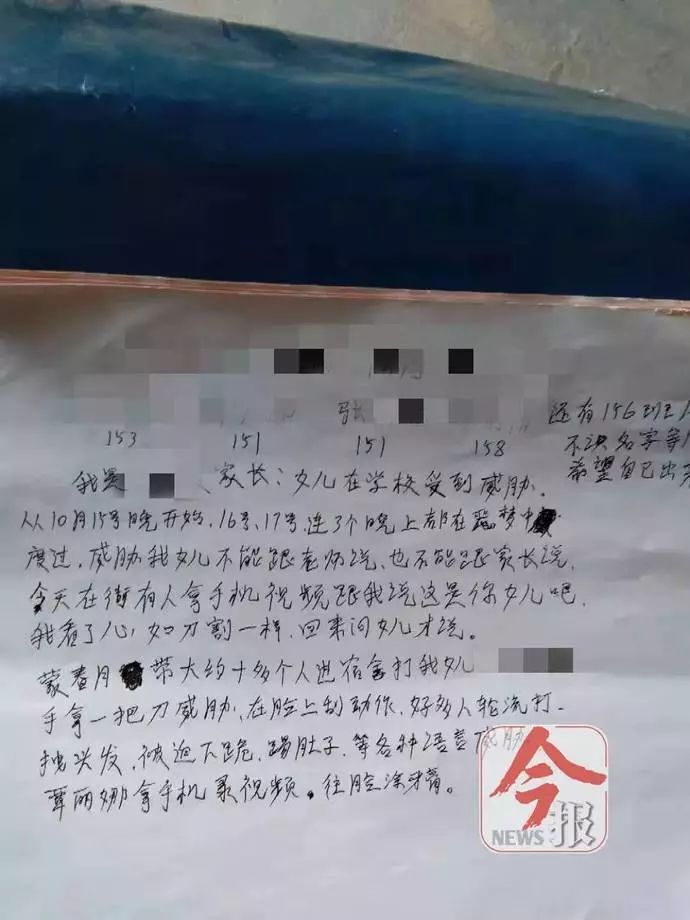 张
还有156班
153 151 151 158
不决名字等
希望自己出
我是 家长:女儿在学校受到威胁.
从10月15号晚开始,16号,17号,连了个晚上都在恶梦中
度过,威胁我女儿不能跟老师说,也不能跟家长说,
今天在街有人拿手机视频跟我说这是你女儿吧,
我看了心如刀割一样,回来问女儿才说。
蒙春月 带大约十多个人进宿舍打我女儿
手拿一把刀威胁,在脸上刮动作,好多人轮流打-
拽头发,被迫下跪,踢肚子,等各种语言威胁
覃丽娜拿手机录视频。往脸涂牙膏。
今报
NEWS